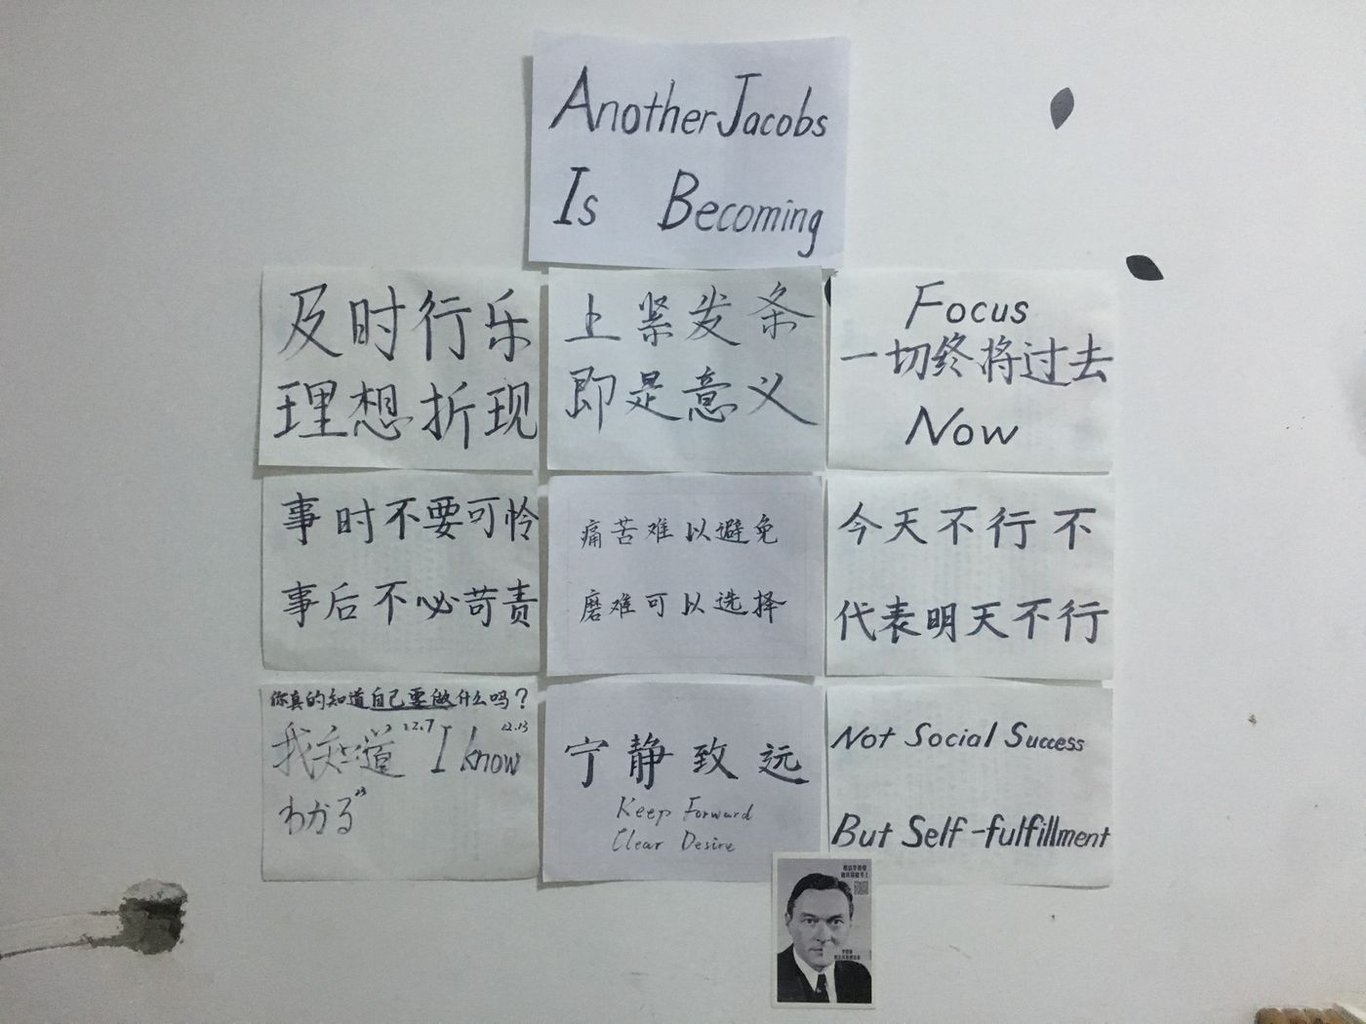 Another Jacobs
Is Becoming
及时行乐
理想折现
上紧发条
即是意义
Focus
一切终将过去
Now
事时不要可怜
事后不必苛责
痛苦难以避免
磨难可以选择
今天不行不
代表明天不行
你真的知道自己要做什么吗?
我知道 22.7 I know 22.13
わかる 23
宁静致远
Keep Forward
Clear Desire
Not Social Success
But Self-fulfillment